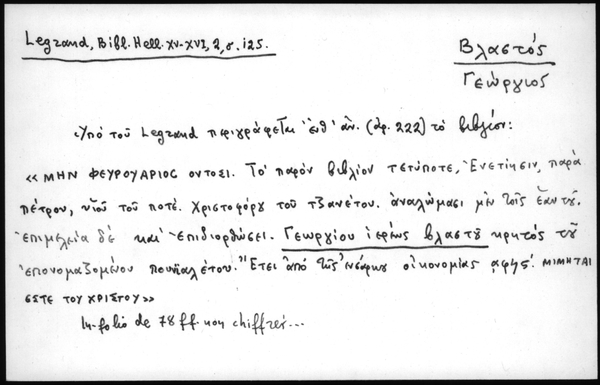 Legrand, Bibl. Hell. XV-XVI, 2, σ. 125.
Βλαστός
Γεώργιος
Ὑπό τοῦ Legrand περιγράφεται ἐνθ' ἀν. (ἀρ. 222) τό βιβλίον:
«ΜΗΝ ΦΕΥΡΟΥΑΡΙΟΣ ΟΥΤΟΣΙ. Τό παρόν βιβλίον τετύποτε, Ἐνετίησιν, παρά
πέτρου, υἱοῦ τοῦ ποτέ. Χριστοφόρου τοῦ τζανέτου. ἀναλώμασι μέν τοῖς ἑαυτοῦ.
ἐπιμελεία δέ καί ἐπιδιορθώσει. Γεωργίου ἱερέως βλαστοῦ κρητός τοῦ
ἐπονομαζομένου πουνιαλέτου. Ἔτει ἀπό τῆς ἐνσάρκου οἰκονομίας αφης΄. ΜΙΜΗΤΑΙ
ΕΣΤΕ ΤΟΥ ΧΡΙΣΤΟΥ»
In-folio de 78 ff. non chiffrés...